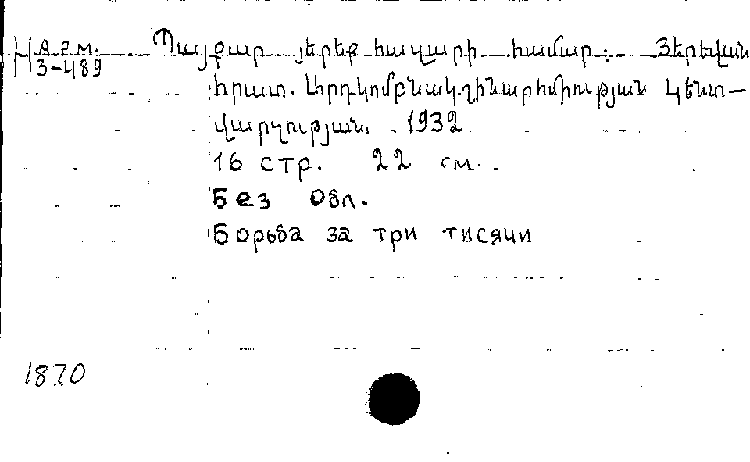 А.г.м. Պայքար յերեք հազարի համար: Յերեվան
3-489 հրատ. Կենտ-
վարչության. 1932
16 стр. 22 см.
Без Обл.
Борьба за три тисячи
1870